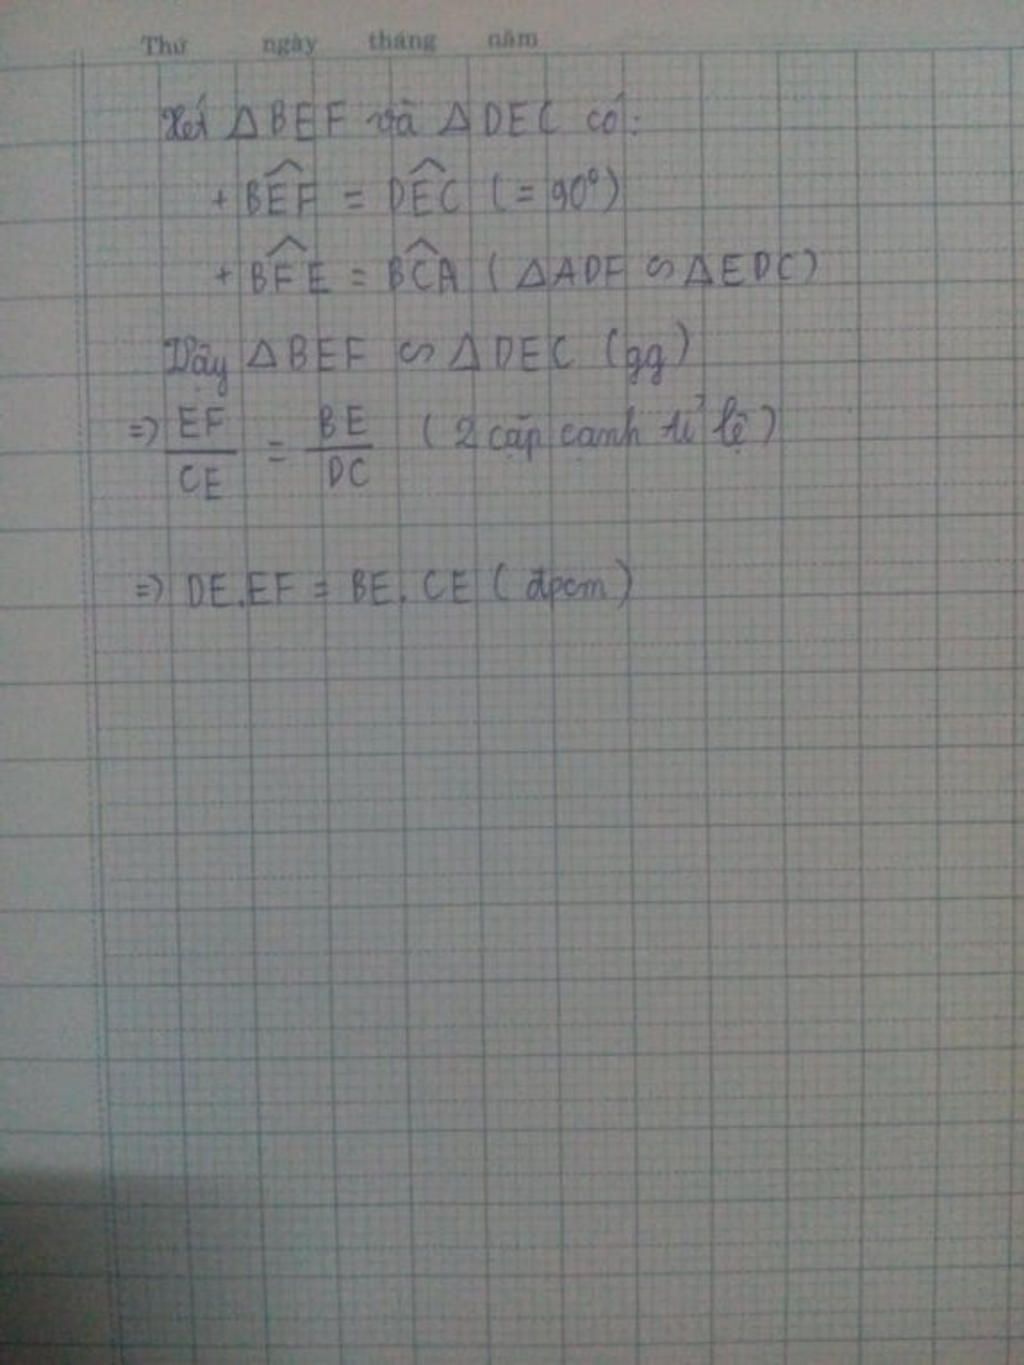 Thứ ngày tháng năm
Xét △BEF và △DEC có:
+ BÊF = DÊC (= 90°)
+ BF̂E = BĈA (△ADF ∽ △EDC)
Vậy △BEF ∽ △DEC (gg)
=> EF/CE = BE/DC (2 cặp cạnh tỉ lệ)
=> DE.EF = BE.CE (đpcm)